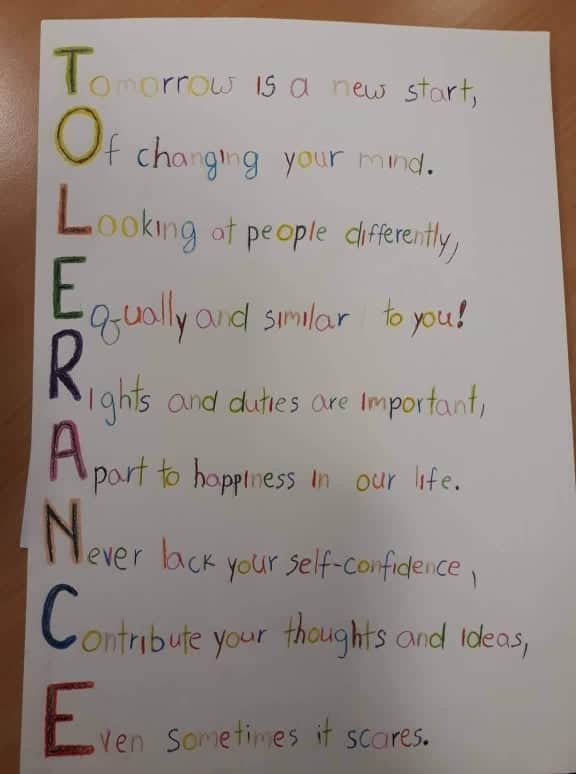 Tomorrow is a new start,
Of changing your mind.
Looking at people differently,
Equally and similar to you!
Rights and duties are important,
Apart to happiness in our life.
Never lack your self-confidence,
Contribute your thoughts and ideas,
Even sometimes it scares.